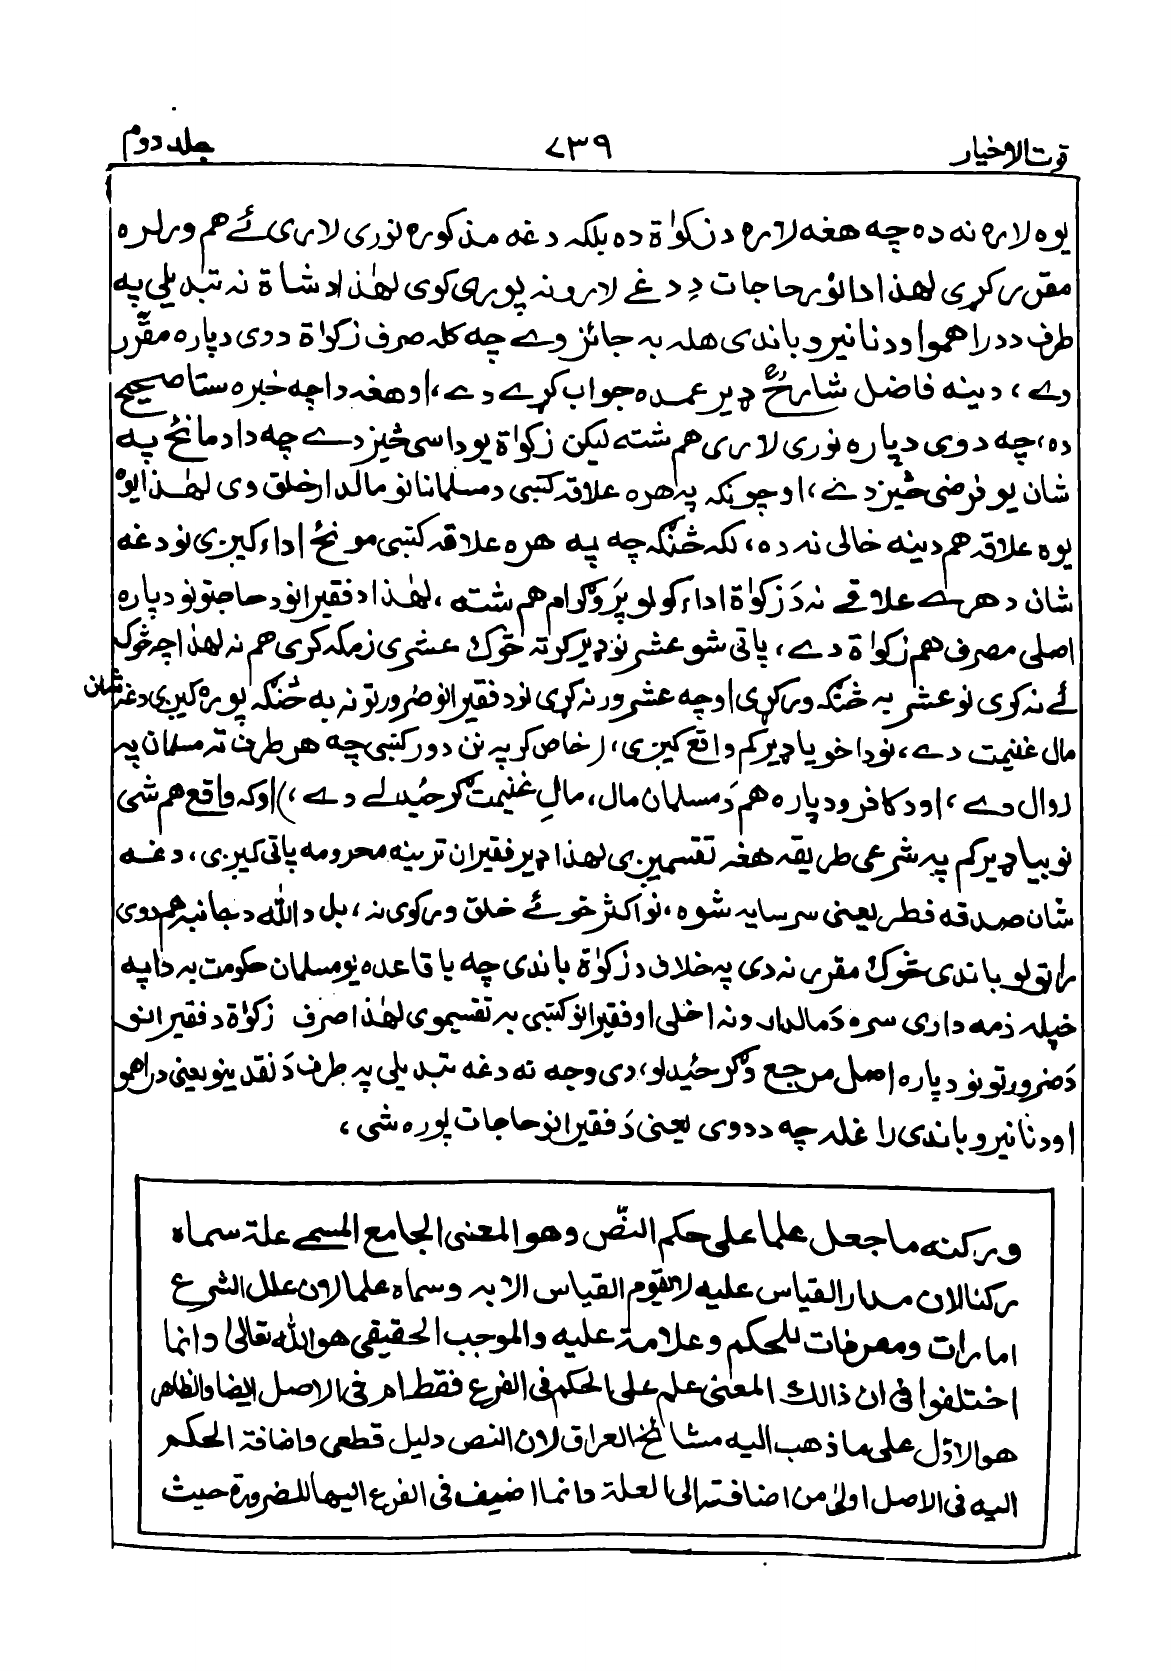 قوت الاخیار ۷۳۹ جلد دوم
یوه لاره نه ده چه هغه لاره د زکوٰة ده بلکه دغه مذکوره نوری لاری ئے هم ورلره
مقرر کړی لهذا دا نور حاجات دِ دغے لارو نه پوری کوی لهٰذا د شاة نه تبدیلی په
طرف د دراهمو او دنانیرو باندی هله به جائز وے چه کله صرف زکوٰة د دوی دپاره مقرّر
وے ، دینه فاضل شارحؒ ډیر عمده جواب کړے دے ، او هغه دا چه خبره ستا صحیح
ده ، چه د دوی دپاره نوری لاری هم شته لیکن زکوٰة یو داسی څیز دے چه دا د مانځه په
شان یو فرضی څیز دے ، او چونکه په هره علاقه کښی د مسلمانانو مالدار خلق وی لهٰذا یوه
یوه علاقه هم دینه خالی نه ده ، لکه څنګه چه په هره علاقه کښی مونځ اداء کیږی نو دغه
شان د هرے علاقے نه دَ زکوٰة اداء کولو پروګرام هم شته ، لهٰذا د فقیرانو د حاجتونو دپاره
اصلی مصرف هم زکوٰة دے ، پاتی شو عشر نو ډیر کرته څوک عشری زمکه کری هم نه لهذا چه څوک
ئے نه کوی نو عشر به څنګه ورکړی او چه عشر ور نه کړی نو د فقیرانو ضرورتونه به څنګه پوره کیږی دغه شان
مال غنیمت دے ، نو دا خو یا ډیر کم واقع کیږی ، (خاص کر په نن دور کښی چه هر طرف ته مسلمان په
زوال دے ، او د کافرو دپاره هم دَ مسلمان مال ، مالِ غنیمت ګرځیدلے دے ،) او که واقع هم شی
نو بیا ډیر کم په شرعی طریقه هغه تقسمیږی لهذا ډیر فقیران ترینه محرومه پاتی کیږی ، دغه
شان صدقه فطر یعنی سرسایه شوه ، نو اکثر خوئے خلق ورکوی نه ، بل د الله د جانبه هم دوی
راټولو باندی څوک مقرر نه دی په خلاف د زکوٰة باندی چه باقاعده یو مسلمان حکومت به دا په
خپله ذمه داری سره دَ مالدارو نه اخلی او فقیرانو کښی به تقسیموی لهٰذا صرف زکوٰة د فقیرانو
دَ ضرورتونو دپاره اصل مرجع وګرځیدلو ، دی وجه نه دغه تبدیلی په طرف دَ نقدینو یعنی دراهمو
او دنانیرو باندی را غله چه د دوی یعنی دَ فقیرانو حاجات پوره شی ،
ورکنه ما جعل علما علی حکم النّص وهو المعنی الجامع المسمے علة سماه
رکنا لان مدار القیاس علیه لا یقوم القیاس الا به وسماه علما لان علل الشرع
امارات ومعرفات للحکم وعلامة علیه والموجب الحقیقی هو الله تعالیٰ وانما
اختلفوا فی ان ذالک المعنی علم علی الحکم فی الفرع فقط ام فی الاصل ایضا والظاهر
هو الاوّل علی ما ذهب الیه مشائخ العراق لان النص دلیل قطعی واضافة الحکم
الیه فی الاصل اولیٰ من اضافته الی العلة وانما اضیف فی الفرع الیها للضرورة حیث